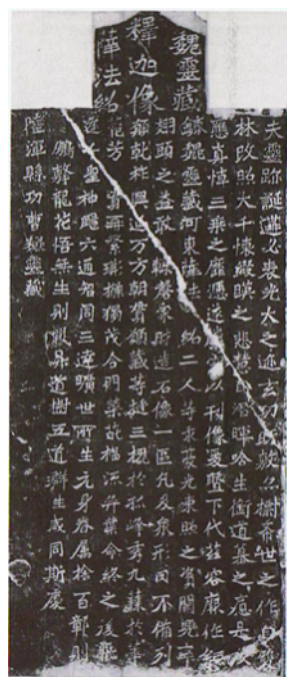 魏靈藏
釋迦像
薛法紹
夫靈跡誕遘必表光大之迹玄功既敷亦樹希世之作自雙
林改照大千懷綴暎之悲慧日潛暉唅生銜道慕之痛是以
應真悼三乘之靡憑遂空以刊像爰暨下代茲容廝作鉅
鹿魏靈藏河東薛法紹二人等求豪光東照之資闕兜率
翅頭之益敢輒磬家財造石像一區凡及眾形罔不備列
願乾祚興延万方朝貫願藏等挺三槐於孤峰秀九蕀於華
菀芳實再繁荊條獨茂合門榮葩福流奕葉命終之後飛
逢千聖神颺六通智周三達曠世所生元身眷屬捨百鄣則
鵬擊龍花悟無生則鳳昇道樹五道群生咸同斯慶
陸渾縣功曹魏靈藏